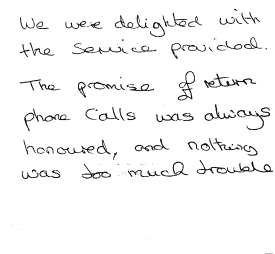 We were delighted with
the service provided.
The promise of return
phone calls was always
honoured, and nothing
was too much trouble